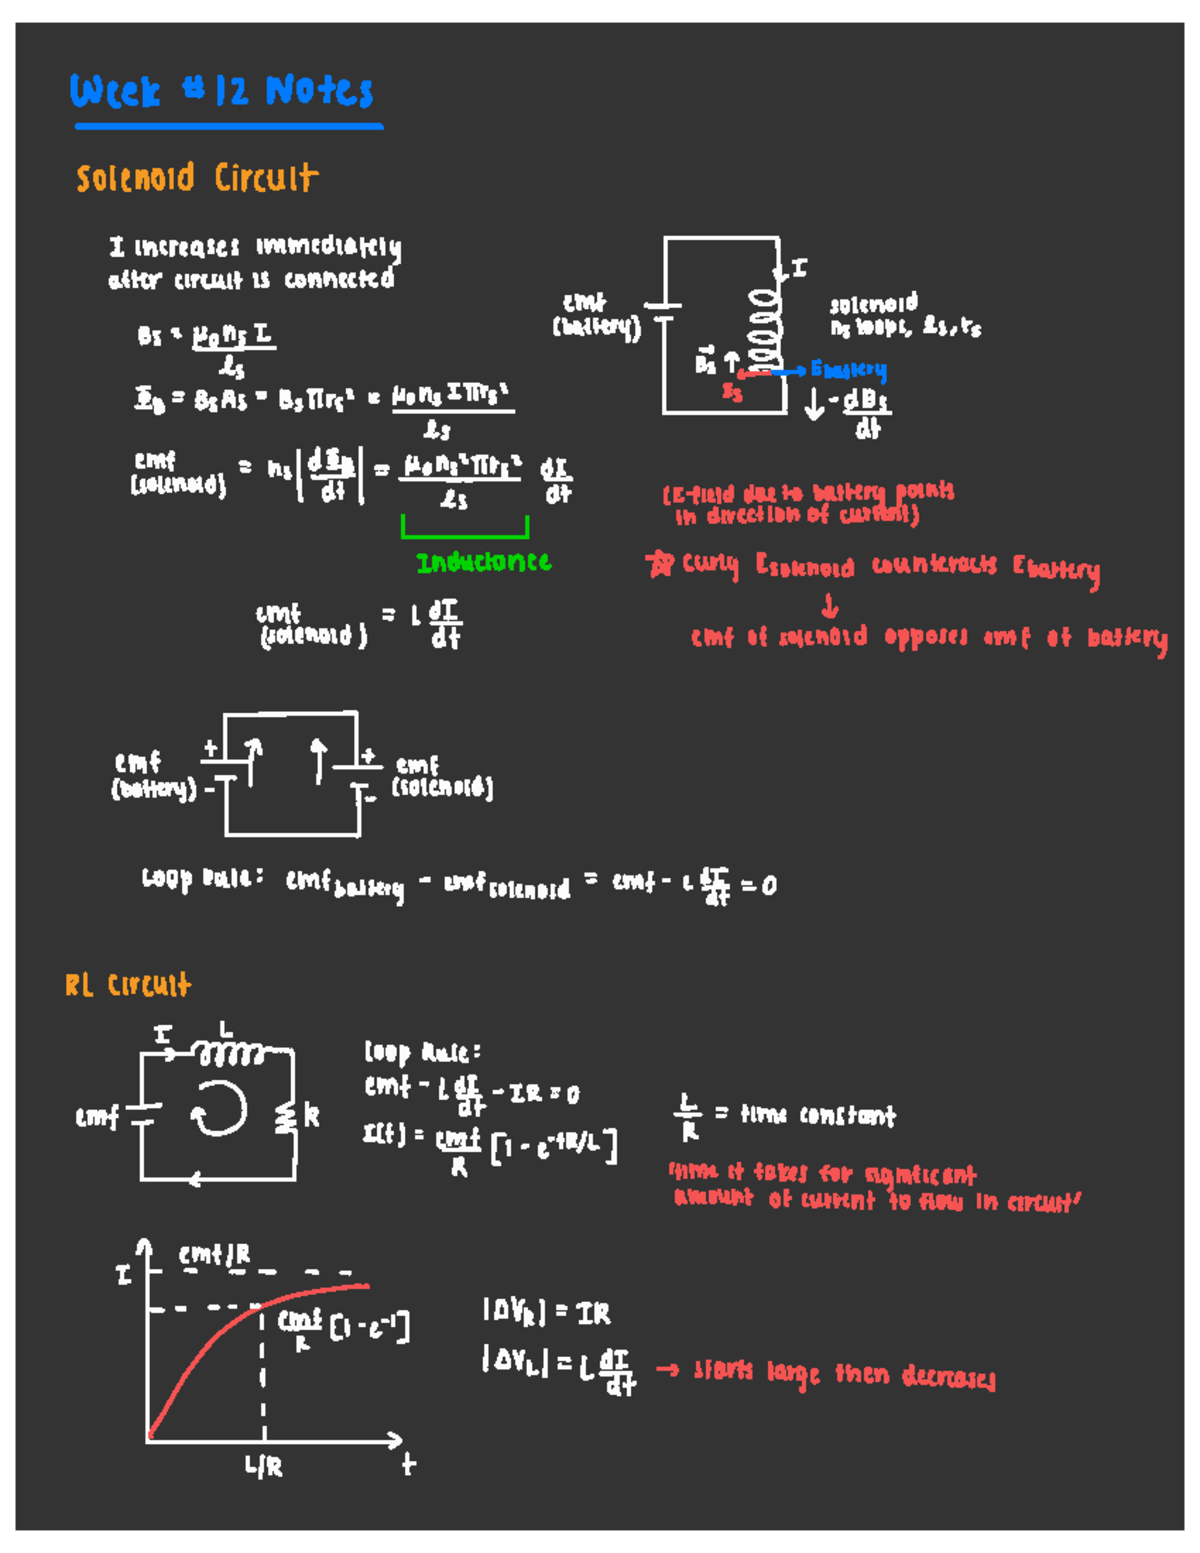 Week #12 Notes
Solenoid Circuit
I increases immediately
after circuit is connected
Bs = μ₀nsI / ls
ΦB = BsAs = Bsπrs² = μ₀nsIπrs² / ls
emf (solenoid) = ns |dΦB/dt| = μ₀ns²πrs² / ls dI/dt
Inductance
emf (solenoid) = L dI/dt
I
emf
(battery)
solenoid
ns loops, ls, rs
B⃗s
Es
Ebattery
-dBs/dt
(E-field due to battery points
in direction of current)
☆ Curly Esolenoid counteracts Ebattery
↓
emf of solenoid opposes emf of battery
emf
(battery)
+
-
+
-
emf
(solenoid)
Loop Rule: emfbattery - emfsolenoid = emf - L dI/dt = 0
RL Circuit
I
L
emf
R
Loop Rule:
emf - L dI/dt - IR = 0
I(t) = emf/R [1 - e^-tR/L]
L/R = time constant
'time it takes for significant
amount of current to flow in circuit'
I
emf/R
emf/R [1 - e⁻¹]
L/R
t
|ΔVR| = IR
|ΔVL| = L dI/dt → starts large then decreases